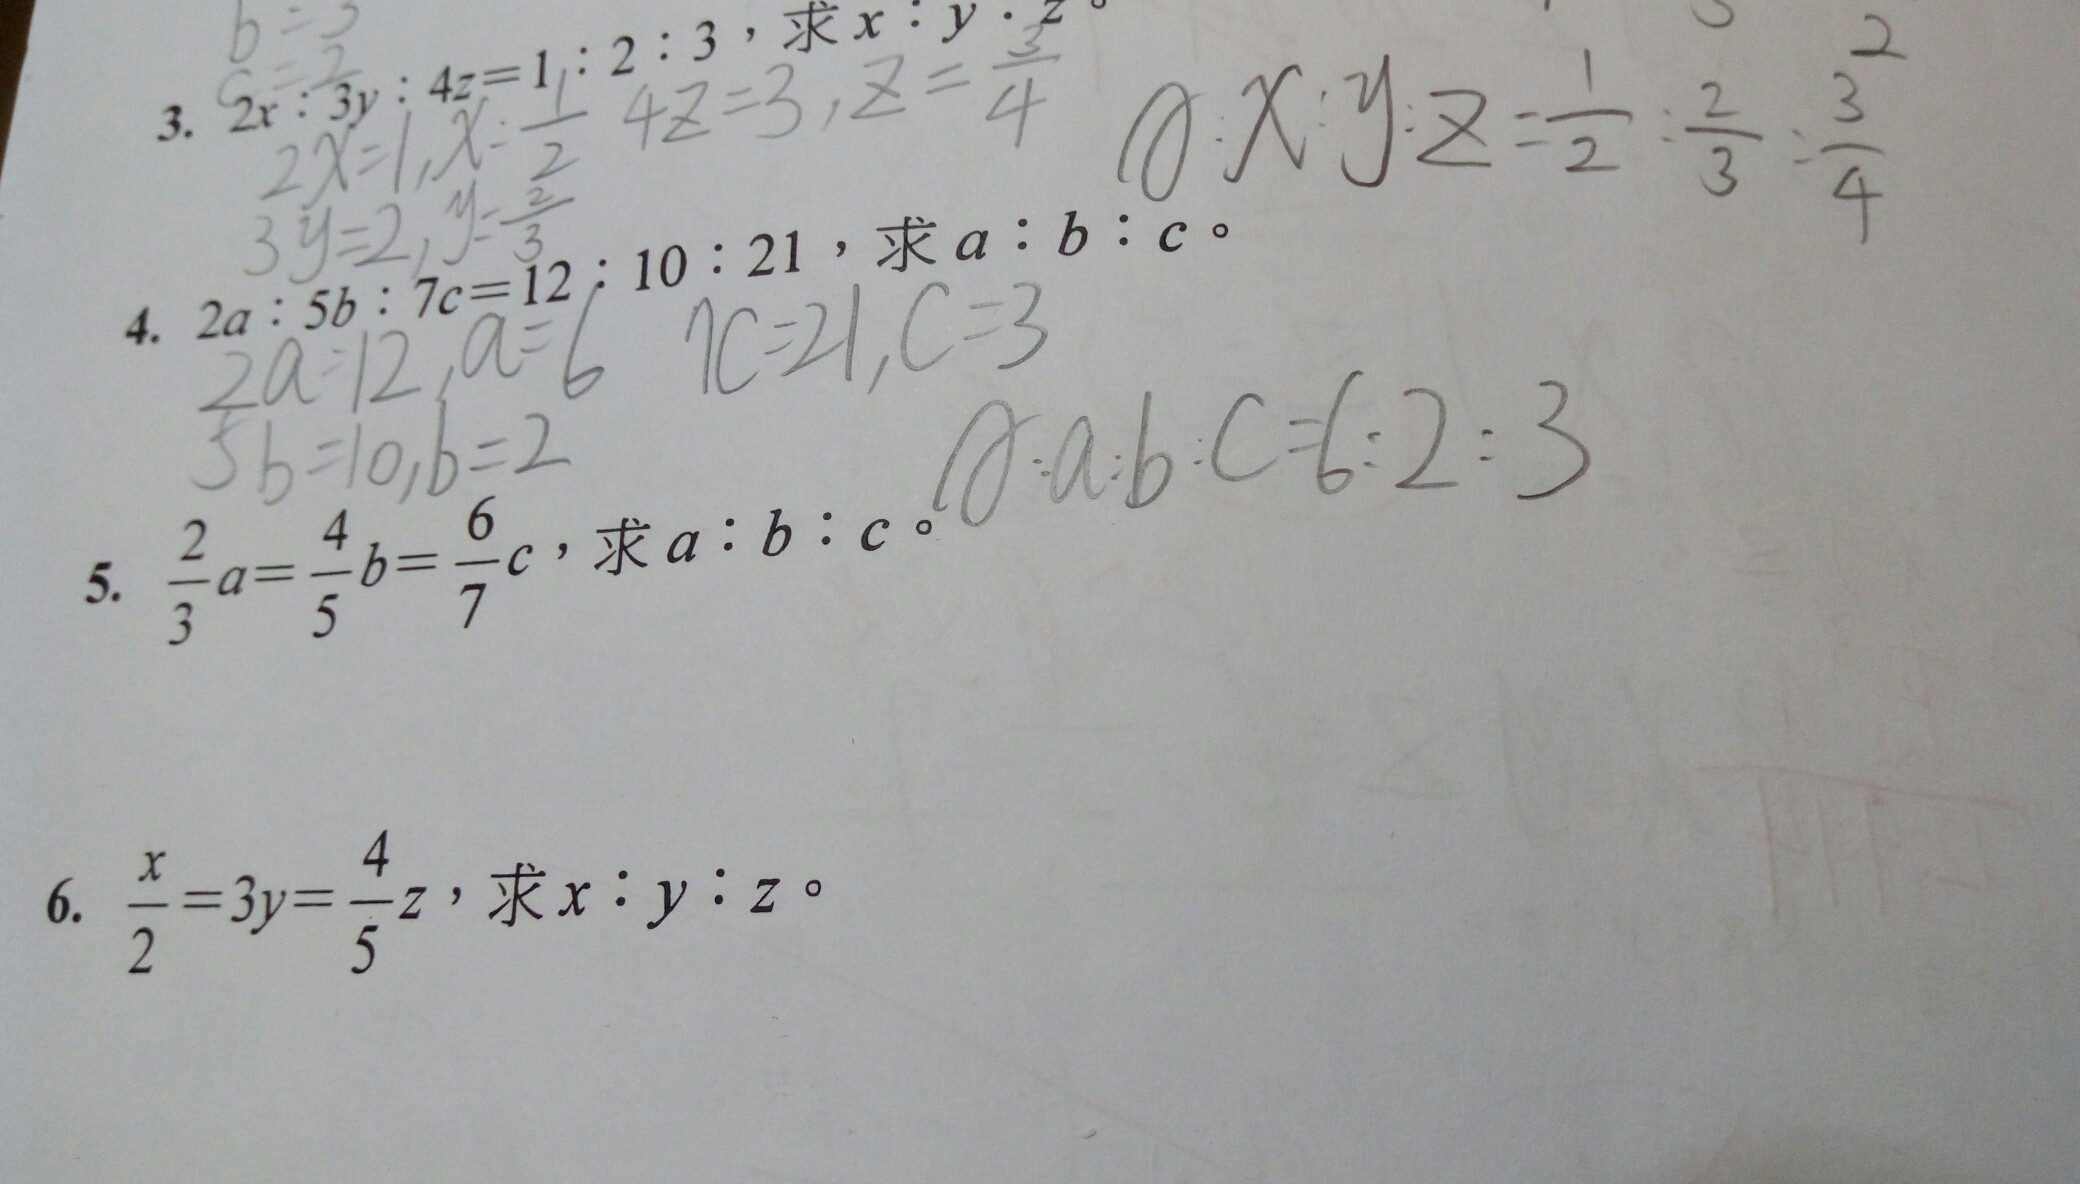 b=3
c=2
3. 2x：3y：4z=1：2：3，求x：y：z。
2x=1, x=1/2 4z=3, z=3/4
3y=2, y=2/3
A:x:y:z=1/2:2/3:3/4
4. 2a：5b：7c=12：10：21，求a：b：c。
2a=12, a=6 7c=21, c=3
5b=10, b=2
A:a:b:c=6:2:3
5. 2/3a=4/5b=6/7c，求a：b：c。
6. x/2=3y=4/5z，求x：y：z。